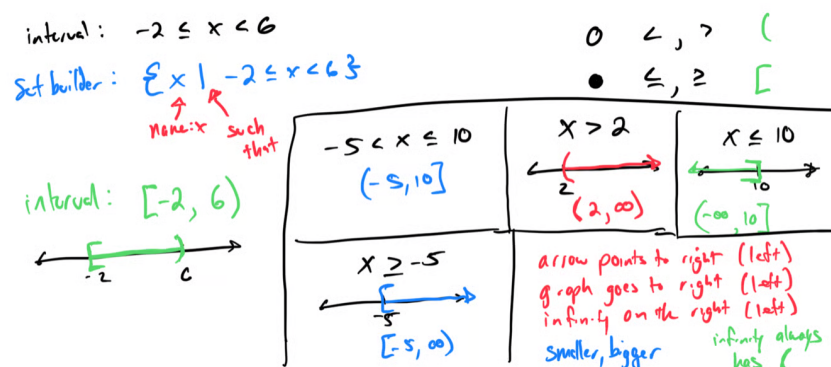 interval: -2 ≤ x < 6
Set builder: {x | -2 ≤ x < 6}
name: x such that
interval: [-2, 6)
-2 6
o <, > (
● ≤, ≥ [
-5 < x ≤ 10
(-5, 10]
x > 2
2
(2, ∞)
x ≤ 10
10
(-∞, 10]
x ≥ -5
-5
[-5, ∞)
arrow points to right (left)
graph goes to right (left)
infinity on the right (left)
smaller, bigger
infinity always
has (